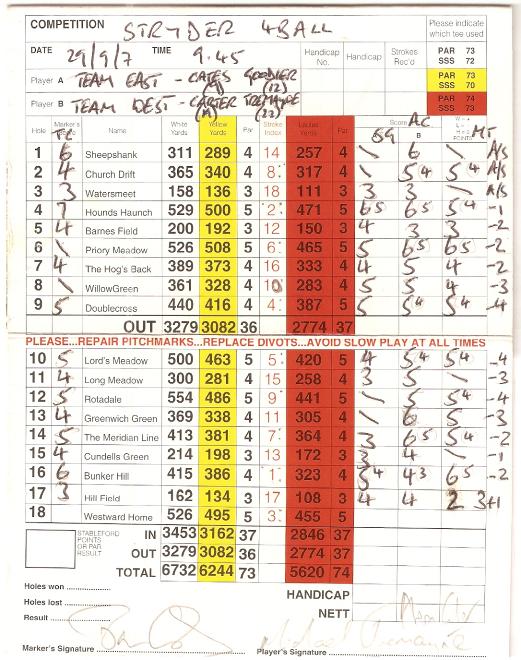 COMPETITION STRYDER 4BALL Please indicate which tee used
DATE 29/9/7 TIME 9.45 Handicap No. Handicap Strokes Rec'd PAR 73 SSS 72
Player A TEAM EAST - CATES GOODIER (12) PAR 73 SSS 70
Player B TEAM WEST - CARTER TREMAYNE (22) PAR 74 SSS 73
Hole Marker's Score Name White Yards Yellow Yards Par Stroke Index Ladies Yards Par Score B AC MT
1 6 Sheepshank 311 289 4 14 257 4 \ 6 \ A/S
2 4 Church Drift 365 340 4 8 317 4 \ 54 54 A/S
3 3 Watersmeet 158 136 3 18 111 3 3 3 \ A/S
4 7 Hounds Haunch 529 500 5 2 471 5 65 65 54 -1
5 4 Barnes Field 200 192 3 12 150 3 4 3 3 -2
6 \ Priory Meadow 526 508 5 6 465 5 5 65 65 -2
7 4 The Hog's Back 389 373 4 16 333 4 4 5 4 -2
8 \ WillowGreen 361 328 4 10 283 4 5 5 4 -3
9 5 Doublecross 440 416 4 4 387 5 5 54 54 -4
OUT 3279 3082 36 2774 37
PLEASE...REPAIR PITCHMARKS...REPLACE DIVOTS...AVOID SLOW PLAY AT ALL TIMES
10 5 Lord's Meadow 500 463 5 5 420 5 4 54 54 -4
11 4 Long Meadow 300 281 4 15 258 4 3 5 \ -3
12 5 Rotadale 554 486 5 9 441 5 \ 5 5 -4
13 4 Greenwich Green 369 338 4 11 305 4 \ 6 5 -3
14 5 The Meridian Line 413 381 4 7 364 4 3 65 54 -2
15 4 Cundells Green 214 198 3 13 172 3 3 4 \ -1
16 6 Bunker Hill 415 386 4 1 323 4 54 43 65 -2
17 3 Hill Field 162 134 3 17 108 3 4 4 2 3+1
18 Westward Home 526 495 5 3 455 5
STABLEFORD POINTS OR PAR RESULT IN 3453 3162 37 2846 37
OUT 3279 3082 36 2774 37
TOTAL 6732 6244 73 5620 74
Holes won
HANDICAP
Holes lost
NETT
Result
Marker's Signature Player's Signature